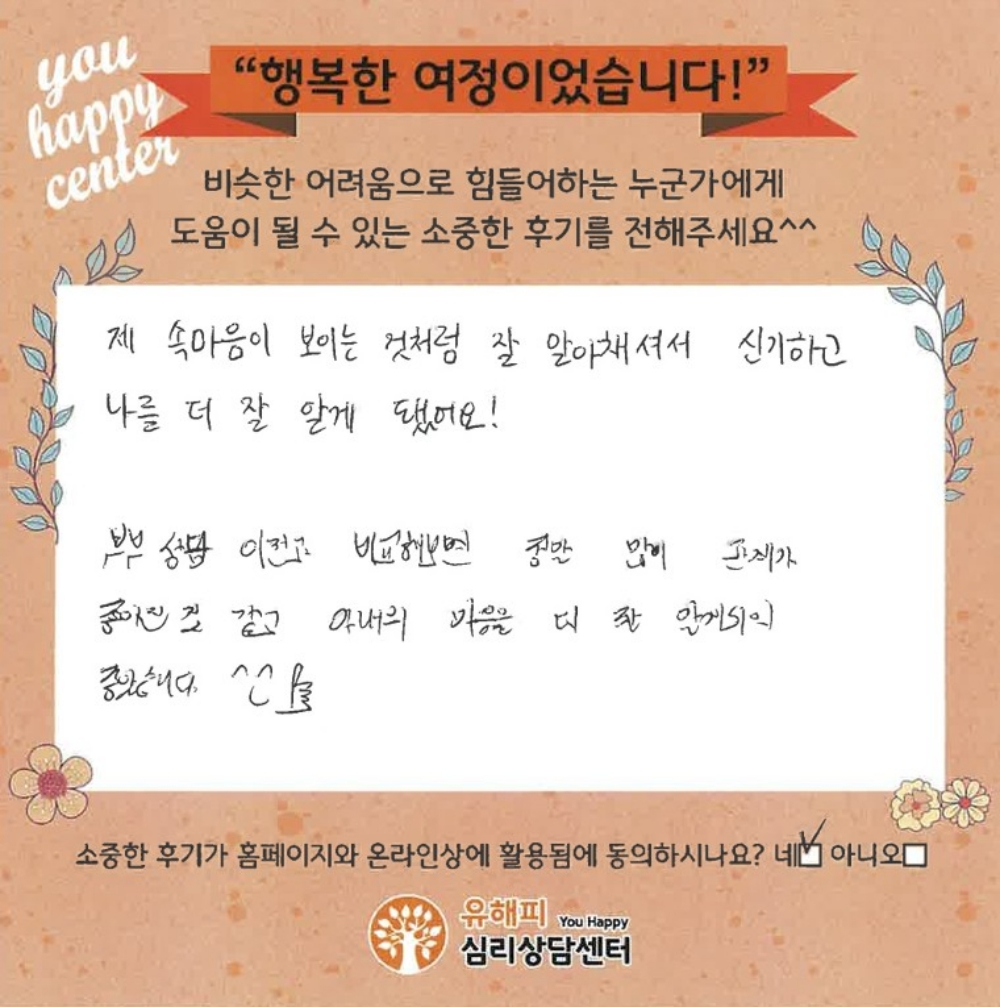 you
happy
center
“행복한 여정이었습니다!”
비슷한 어려움으로 힘들어하는 누군가에게
도움이 될 수 있는 소중한 후기를 전해주세요^^
제 속마음이 보이는 것처럼 잘 알아채셔서 신기하고
나를 더 잘 알게 됐어요!
부부 상담 이전과 비교해보면 정말 많이 관계가
좋아진 것 같고 아내의 마음을 더 잘 알게되어
좋았습니다. ^^
소중한 후기가 홈페이지와 온라인상에 활용됨에 동의하시나요? 네☑ 아니오☐
유해피 You Happy
심리상담센터